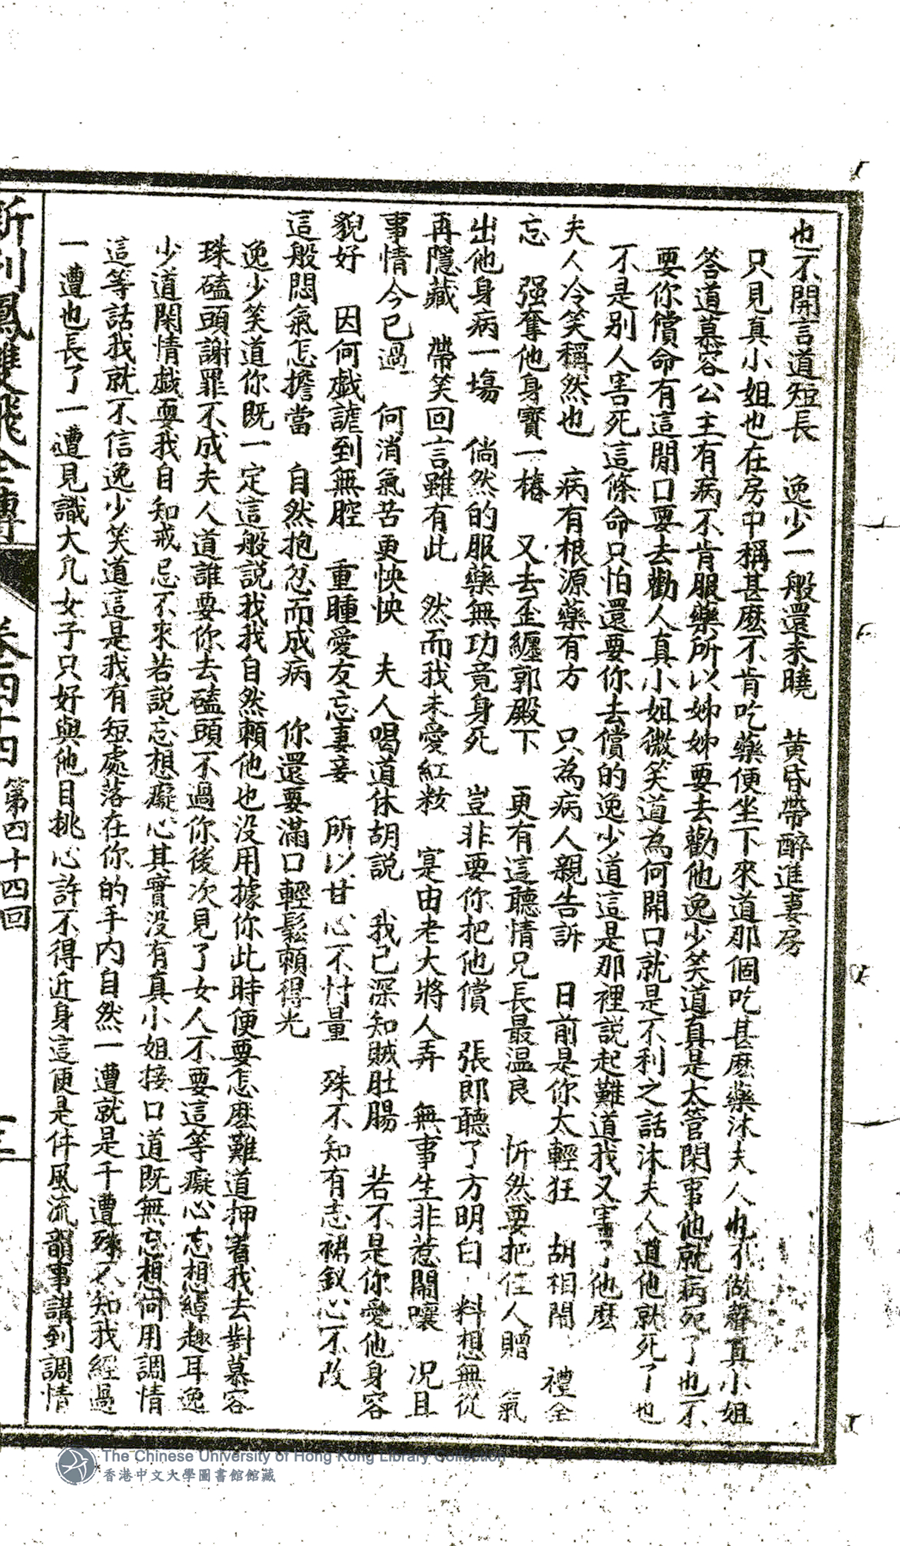 也不開言道短長　逸少一般還未曉　黃昏帶醉進妻房
只見真小姐也在房中稱甚麽不肯吃藥便坐下來道那個吃甚麽藥沐夫人也不做聲真小姐
答道慕容公主有病不肯服藥所以姊姊要去勸他逸少笑道真是太管閑事他就病死了也不
要你償命有這閒口要去勸人真小姐微笑道為何開口就是不利之話沐夫人道他就死了也
不是別人害死這條命只怕還要你去償的逸少道這是那裡說起難道我又害了他麽
夫人冷笑稱然也　病有根源藥有方　只為病人親告訴　日前是你太輕狂　胡相鬧　禮全
忘　強奪他身寳一樁　又去歪纏郭殿下　更有這聽情兄長最温良　忻然要把佳人贈　氣
出他身病一塲　倘然的服藥無功竟身死　豈非要你把他償　張郎聽了方明白　料想無從
再隱藏　帶笑回言雖有此　然而我未愛紅粧　寔由老大將人弄　無事生非惹鬧嚷　况且
事情今已過　何消氣苦更怏怏　夫人喝道休胡說　我已深知賊肚腸　若不是你愛他身容
貌好　因何戯謔到無腔　重瞳愛友忘妻妾　所以甘心不忖量　殊不知有志裙釵心不改
這般悶氣怎擔當　自然抱忿而成病　你還要滿口輕鬆賴得光
逸少笑道你既一定這般說我我自然賴他也没用據你此時便要怎麽難道押著我去對慕容
珠磕頭謝罪不成夫人道誰要你去磕頭不過你後次見了女人不要這等癡心忘想綽趣耳逸
少道閑情戯耍我自知戒忌不來若說忘想癡心其實没有真小姐接口道既無忘想何用調情
這等話我就不信逸少笑道這是我有短處落在你的手内自然一遭就是千遭殊不知我經過
一遭也長了一遭見識大凡女子只好與他目挑心許不得近身這便是件風流韻事講到調情
新刋鳳雙飛全傳　卷四十四　第四十四回